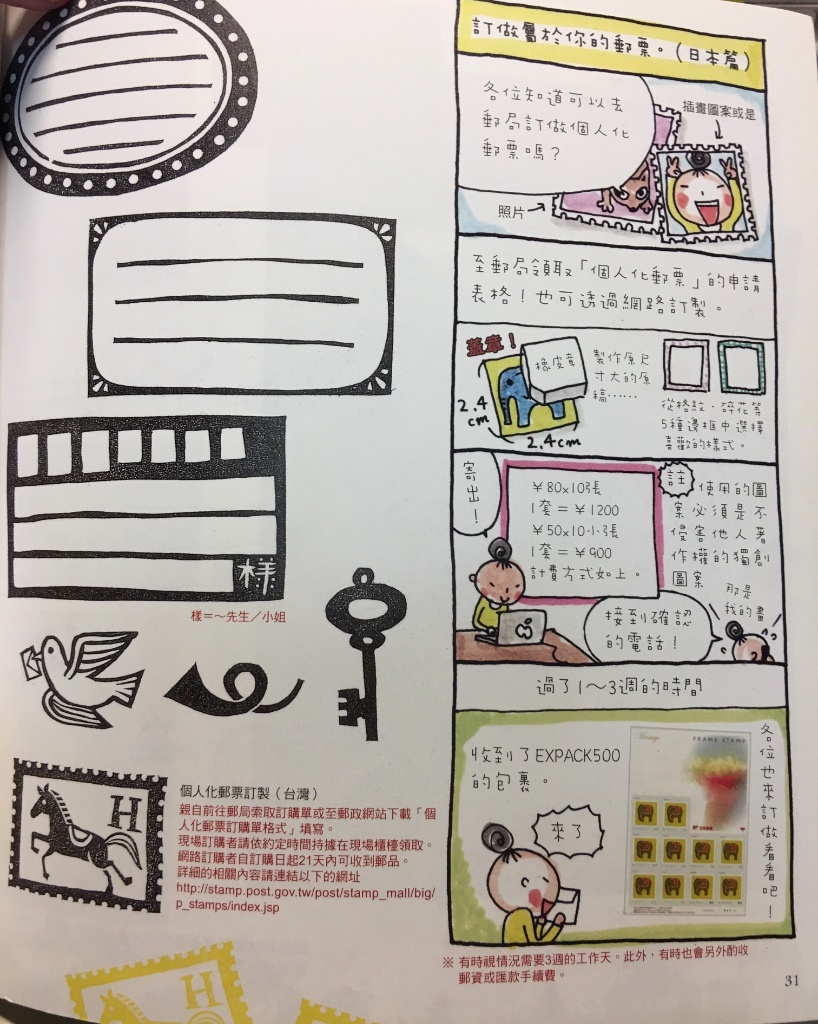 訂做屬於你的郵票。(日本篇)
各位知道可以去
郵局訂做個人化
郵票嗎？
插畫圖案或是
照片
至郵局領取「個人化郵票」的申請
表格！也可透過網路訂製。
蓋章！
橡皮章
2.4
cm
2.4cm
製作原尺
寸大的原
稿……
從格紋、碎花等
5種邊框中選擇
喜歡的樣式。
寄出！
￥80x10張
1套＝￥1200
￥50x10小張
1套＝￥900
計費方式如上。
註
使用的圖
案必須是不
侵害他人著
作權的獨創
圖案
那是
我的畫
接到確認
的電話！
過了1～3週的時間
收到了EXPACK500
的包裹。
來了
FRAME STAMP
各位也來訂做看看吧！
※ 有時視情況需要3週的工作天。此外，有時也會另外酌收
郵資或匯款手續費。
樣
樣＝～先生／小姐
H
個人化郵票訂製（台灣）
親自前往郵局索取訂購單或至郵政網站下載「個
人化郵票訂購單格式」填寫。
現場訂購者請依約定時間持據在現場櫃檯領取。
網路訂購者自訂購日起21天內可收到郵品。
詳細的相關內容請連結以下的網址
http://stamp.post.gov.tw/post/stamp_mall/big/
p_stamps/index.jsp
H
31